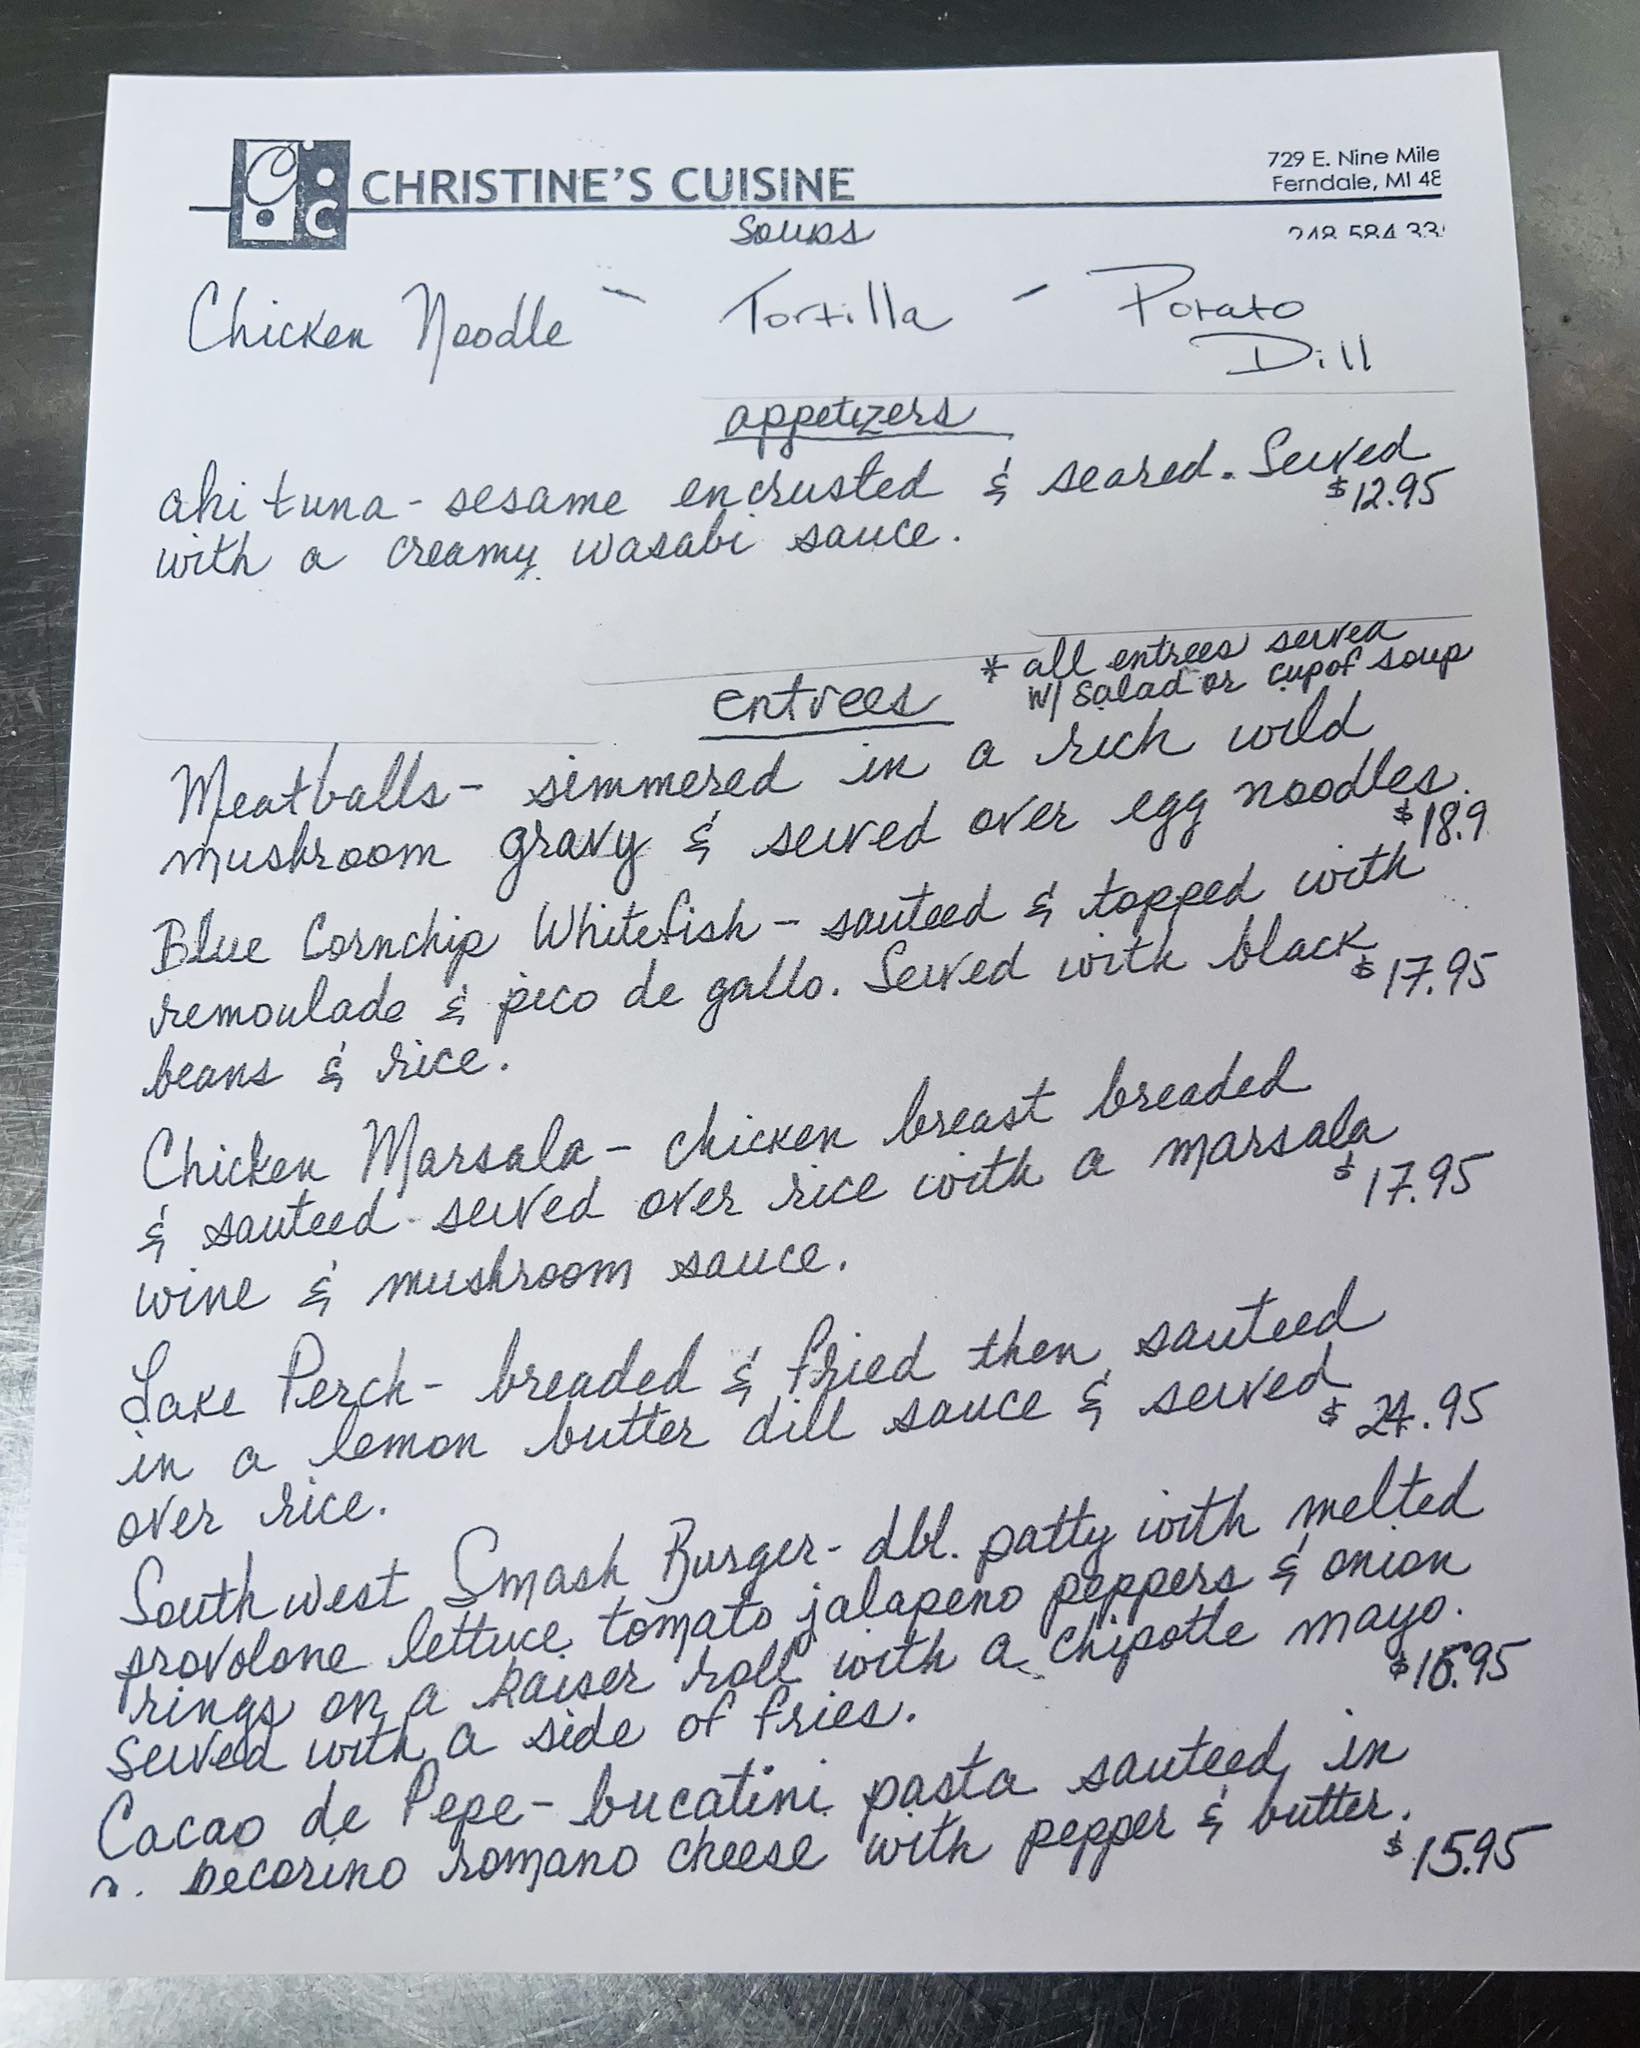 CHRISTINE'S CUISINE
729 E. Nine Mile
Ferndale, MI 48
248 584 33
Soups
Chicken Noodle - Tortilla - Potato
Dill
appetizers
ahi tuna - sesame encrusted & seared. Served
$12.95
with a creamy wasabi sauce.
* all entrees served
w/ salad or cup of soup
entrees
Meatballs - simmered in a rich wild
mushroom gravy & served over egg noodles.
$18.9
Blue Cornchip Whitefish - sauteed & topped with
remoulade & pico de gallo. Served with black
$17.95
beans & rice.
Chicken Marsala - chicken breast breaded
& sauteed - served over rice with a marsala
$17.95
wine & mushroom sauce.
Lake Perch - breaded & fried then sauteed
in a lemon butter dill sauce & served
$24.95
over rice.
Southwest Smash Burger - dbl. patty with melted
provolone lettuce tomato jalapeno peppers & onion
rings on a kaiser roll with a chipotle mayo.
$16.95
Served with a side of fries.
Cacao de Pepe - bucatini pasta sauteed in
pecorino romano cheese with pepper & butter.
$15.95